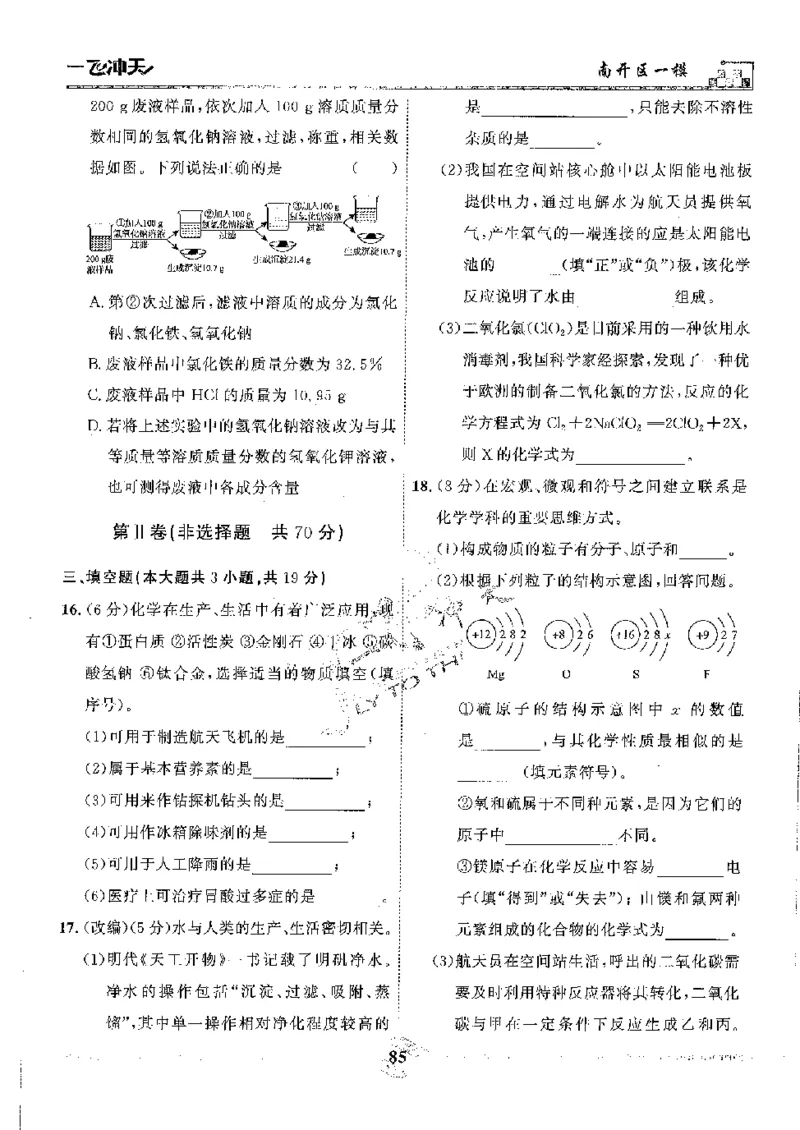 一飞冲天
南开区一模
200 g废液样品,依次加入100 g溶质质量分
数相同的氢氧化钠溶液,过滤,称重,相关数
据如图。下列说法正确的是 ( )
①加入100 g
氢氧化钠溶液
过滤
②加入100 g
氢氧化钠溶液
过滤
③加入100 g
氢氧化钠溶液
过滤
200 g废
液样品
生成沉淀10.7 g
生成沉淀21.4 g
生成沉淀10.7 g
A. 第②次过滤后,滤液中溶质的成分为氯化
钠、氯化铁、氢氧化钠
B. 废液样品中氯化铁的质量分数为 32.5%
C. 废液样品中 HCl 的质量为 10.95 g
D. 若将上述实验中的氢氧化钠溶液改为与其
等质量等溶质质量分数的氢氧化钾溶液,
也可测得废液中各成分含量
第Ⅱ卷(非选择题 共 70 分)
三、填空题(本大题共 3 小题,共 19 分)
16. (6 分)化学在生产、生活中有着广泛应用,现
有①蛋白质 ②活性炭 ③金刚石 ④干冰 ⑤碳
酸氢钠 ⑥钛合金,选择适当的物质填空(填
序号)。
(1)可用于制造航天飞机的是________;
(2)属于基本营养素的是________;
(3)可用来作钻探机钻头的是________;
(4)可用作冰箱除味剂的是________;
(5)可用于人工降雨的是________;
(6)医疗上可治疗胃酸过多症的是 。
17. (改编)(5 分)水与人类的生产、生活密切相关。
(1)明代《天工开物》一书记载了明矾净水。
净水的操作包括“沉淀、过滤、吸附、蒸
馏”,其中单一操作相对净化程度较高的
是________,只能去除不溶性
杂质的是________。
(2)我国在空间站核心舱中以太阳能电池板
提供电力,通过电解水为航天员提供氧
气,产生氧气的一端连接的应是太阳能电
池的________(填“正”或“负”)极,该化学
反应说明了水由 组成。
(3)二氧化氯(ClO₂)是目前采用的一种饮用水
消毒剂,我国科学家经探索,发现了一种优
于欧洲的制备二氧化氯的方法,反应的化
学方程式为 Cl₂+2NaClO₂═2ClO₂+2X,
则 X 的化学式为________。
18. (8 分)在宏观、微观和符号之间建立联系是
化学学科的重要思维方式。
(1)构成物质的粒子有分子、原子和______。
(2)根据下列粒子的结构示意图,回答问题。
+12 2 8 2 +8 2 6 +16 2 8 x +9 2 7
Mg O S F
①硫原子的结构示意图中 x 的数值
是________,与其化学性质最相似的是
______(填元素符号)。
②氧和硫属于不同种元素,是因为它们的
原子中________不同。
③镁原子在化学反应中容易________电
子(填“得到”或“失去”);由镁和氟两种
元素组成的化合物的化学式为______。
(3)航天员在空间站生活,呼出的二氧化碳需
要及时利用特种反应器将其转化,二氧化
碳与甲在一定条件下反应生成乙和丙。
85